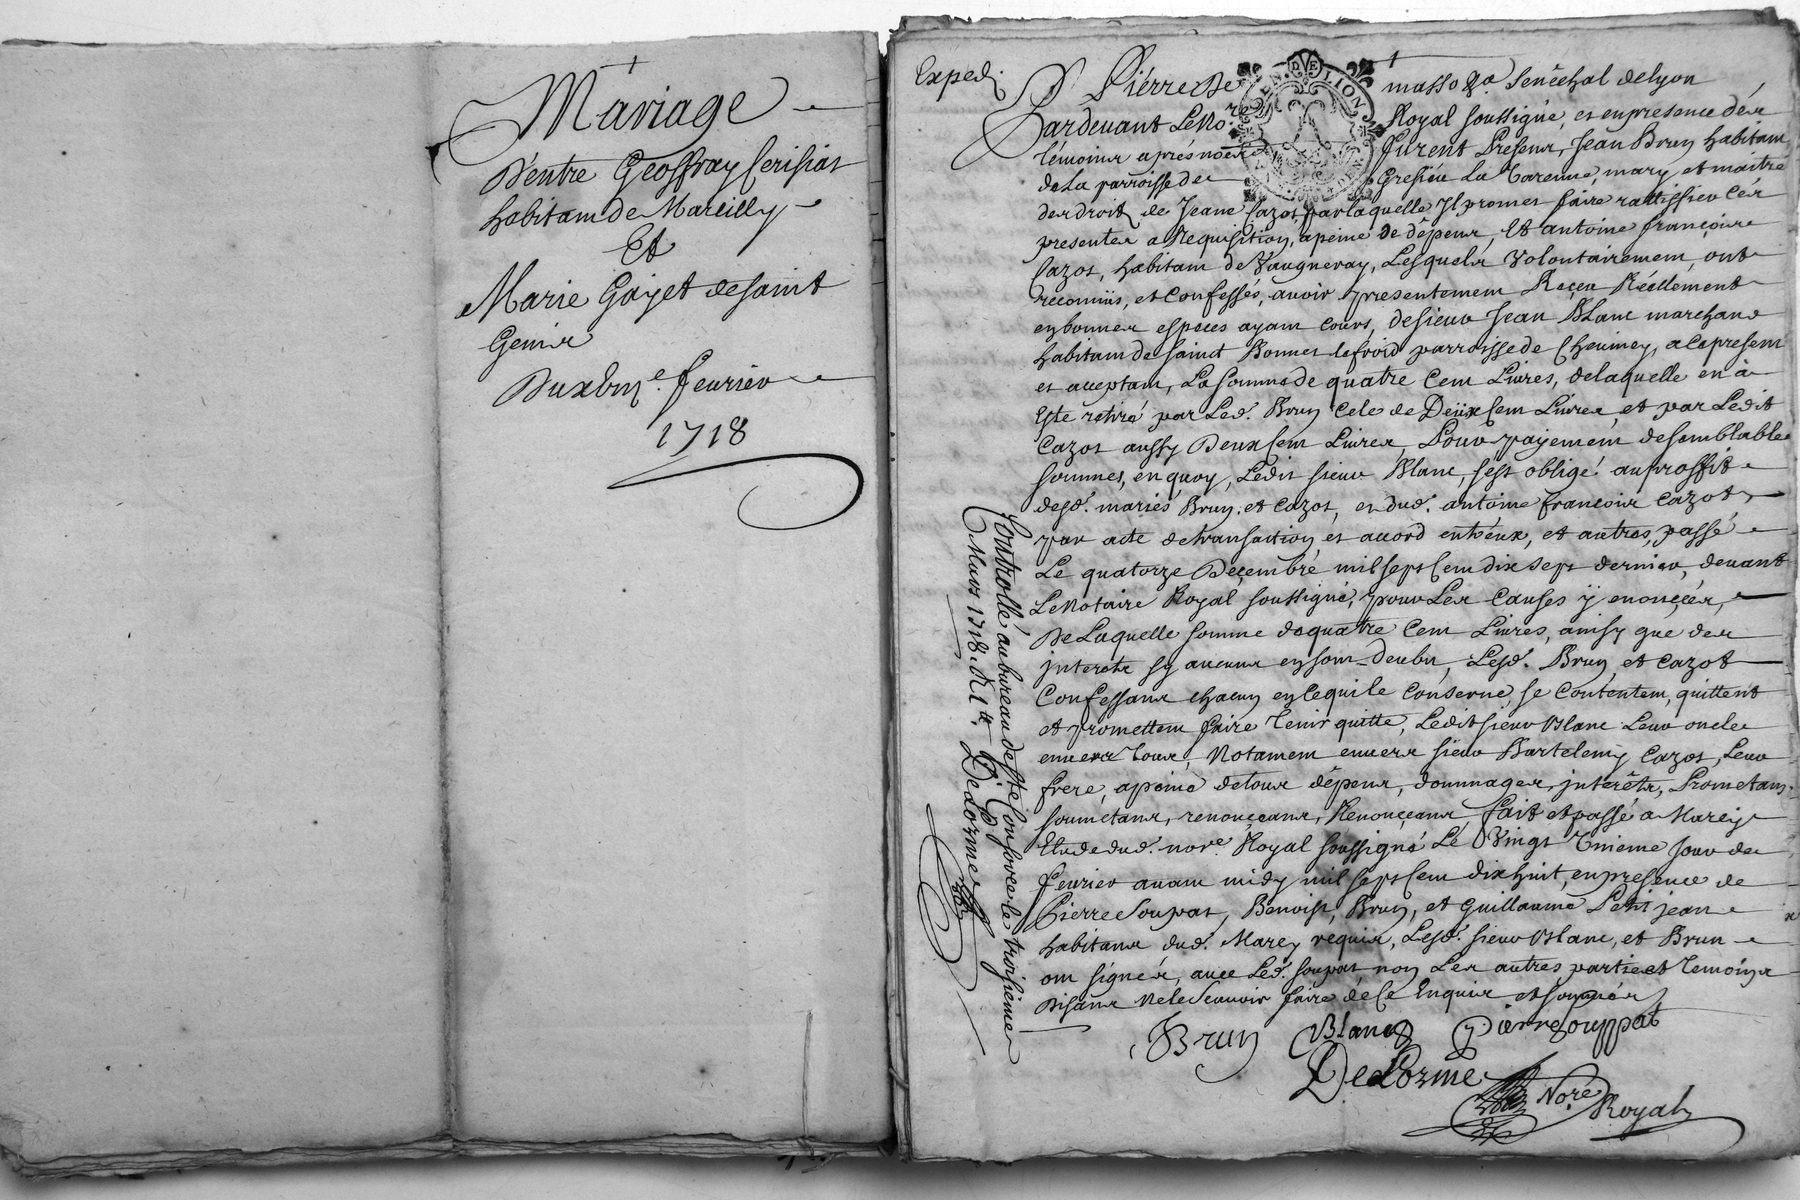 Mariage
D'entre Geoffray Cerisiat
habitam de Marcilly
Et
Marie Gayet de saint
Genis
Du xbii.e feurier
1718
Exped.
Pierre De masso Senéchal de Lyon
Pardeuant Le No.re Royal soussigné, et en presence dés
témoins aprés només furent Presens, Jean Brun habitam
de La parroisse de Gresieu La Varenne, mary et maitre
des droits de Jeane Cazot, par laquelle Il promet faire rattiffier cés
presentes a Requisition, a peine de dépens, Et antoine françois
Cazot, habitam de Vaugneray, Lesquels Volontairement, ont
reconnüs, et Confessés, auoir presentemen Reçeu Réellement
en bonnes especes ayam Cours, de sieur Jean Blanc marchand
habitam de Sainct Bonnet le froid parroisse de Cheuiney, a Ce presem
et acceptam, La somme de quatre Cem Liures, de laquelle en à
Este retiré par Led. Brun Cele de Deux Cem Liures, et par Ledit
Cazot aussy Deux Cem Liures, Pour payement de semblables
sommes, en quoy, Ledit sieur Blanc, s'est obligé au proffit
desd. mariés Brun, et Cazot, et dud. antoine francois Cazot,
par acte de transaction et accord entr'eux, et autres, passé
Le quatorze Decembre mil sept Cem dix sept dernier, deuant
Le Notaire Royal soussigné, pour Les Causes ÿ enoncées,
De Laquelle somme de quatre Cem Liures, ainsy que des
interets sy aucuns en som deubs, Lesd. Brun, et Cazot
Confessans chacun en Ce qui le Conserne, se Contentem, quittent
et promettem faire tenir quitte, Ledit sieur Blanc Leur oncle
enuers tous, Notamem enuers sieur Bartelemy Cazot, Leur
frere, a peine de tous dépens, dommages, interéts, Prometans,
soumetans, renonçeans, Renonçeans, fait et passé a Marcy
Etude dud. no.re Royal soussigné Lé Vingt Unieme Jour de
feurier auam midy mil sept Cem dix huit, en presence de
Pierre Soupat, Benoist Brun, et Guillaume Petit jean
habitans dud. Marcy requis, Lesd. sieur Blanc, et Brun
om signés, auec Led. soupat non Les autres parties et temoins
Disans Ne le Scauoir faire dé Ce Enquis et sommés
Brun Blanc pierre souppat
DeLorme
No.re Royal
Controllé au bureau de Ste Consorce le troisieme
Mars 1718. R 1 tt DeLorme